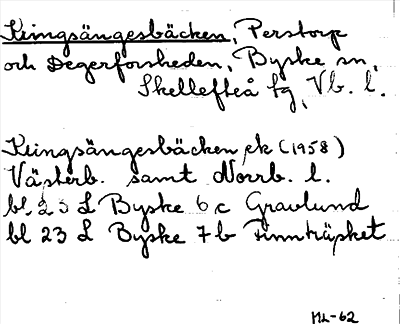 Kringsängesbäcken, Perstorp
och Degerforsheden, Byske sn,
Skellefteå tg, Vb. l.
Kringsängesbäcken, ek (1958)
Västerb. samt Norrb. l.
bl. 23 L Byske 6 c Gravlund
bl 23 L Byske 7 b Finnträsket
ML-62